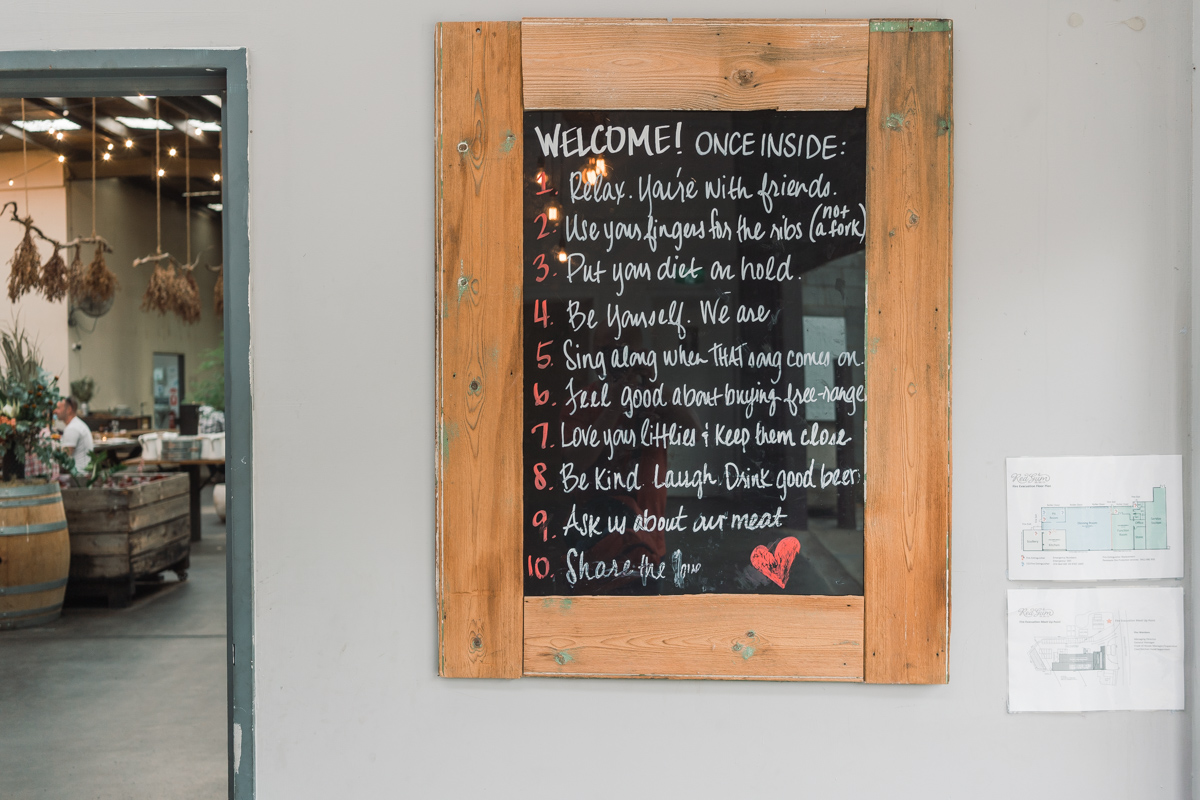 WELCOME! ONCE INSIDE:
1. Relax. You're with friends.
2. Use your fingers for the ribs (not a fork)
3. Put your diet on hold.
4. Be Yourself. We are
5. Sing along when THAT song comes on.
6. Feel good about buying free-range
7. Love your littlies & Keep them close
8. Be Kind. Laugh. Drink good beer.
9. Ask us about our meat
10. Share the love